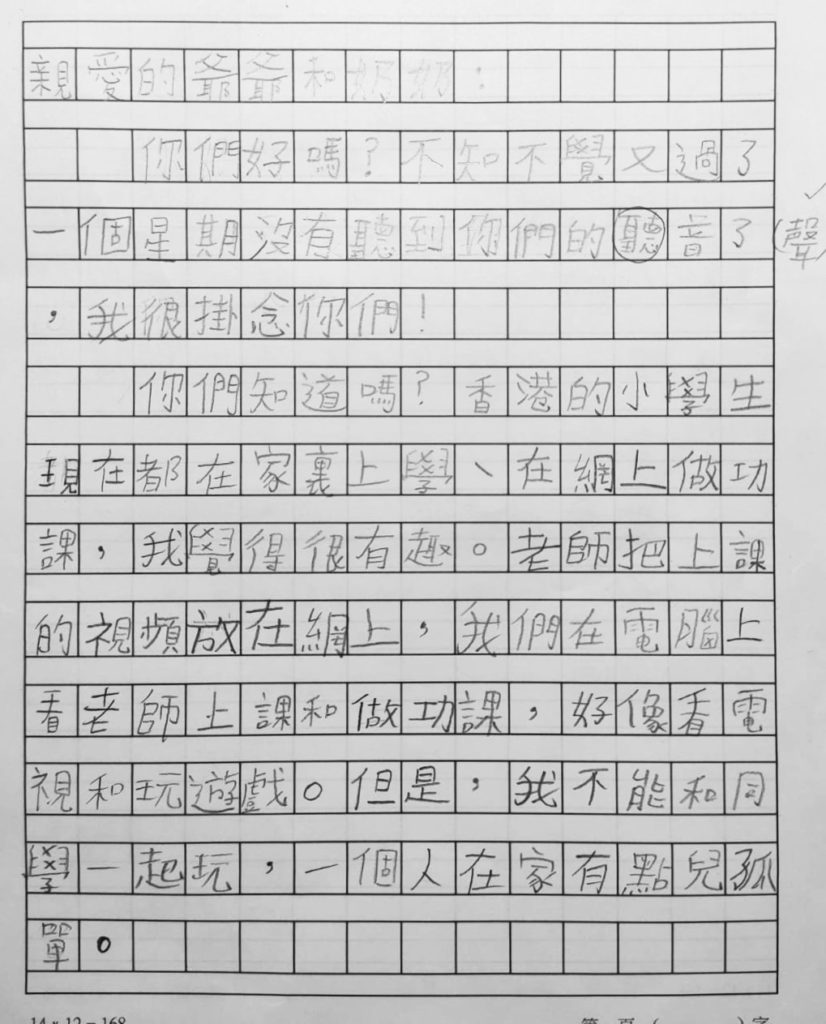 親愛的爺爺和奶奶：
你們好嗎？不知不覺又過了
一個星期沒有聽到你們的聽音了(聲
，我很掛念你們！
你們知道嗎？香港的小學生
現在都在家裏上學、在網上做功
課，我覺得很有趣。老師把上課
的視頻放在網上，我們在電腦上
看老師上課和做功課，好像看電
視和玩遊戲。但是，我不能和同
學一起玩，一個人在家有點兒孤
單。